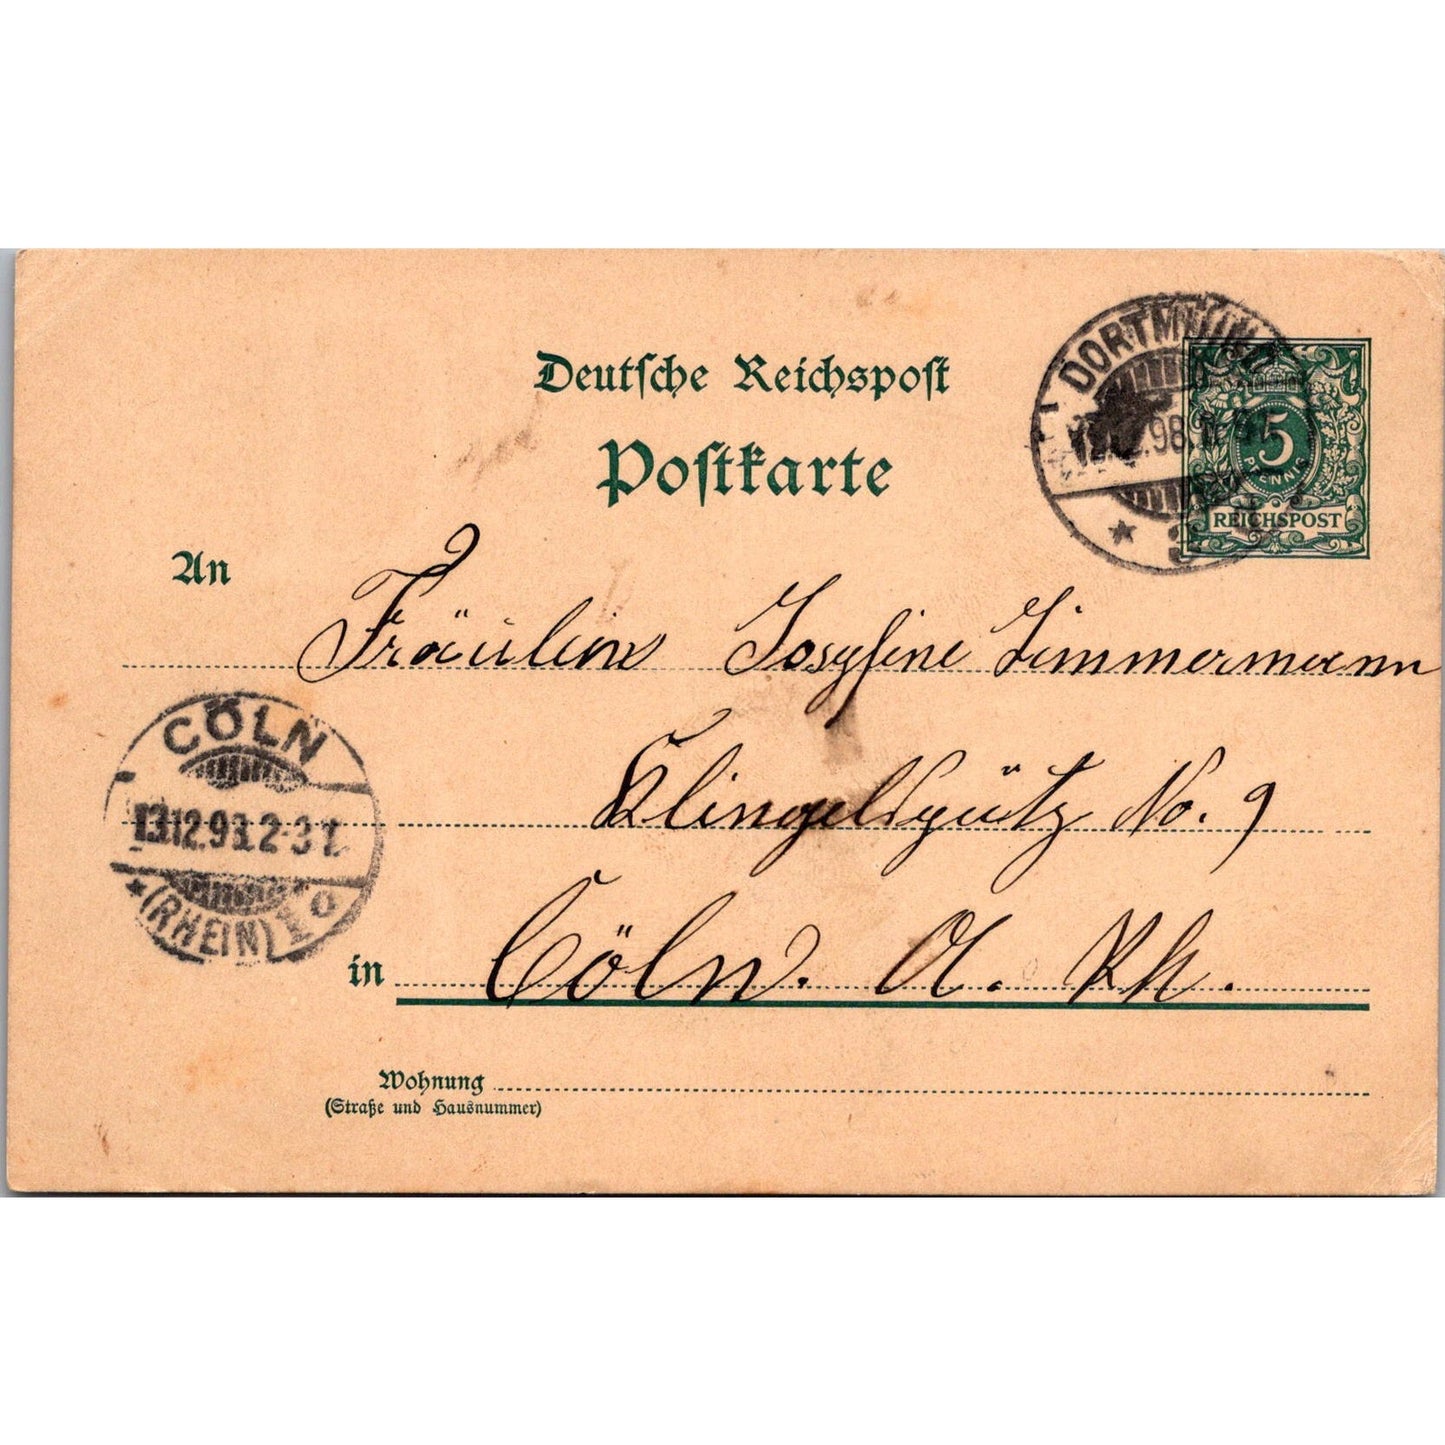 Deutsche Reichspost
Postkarte
DORTMUND
98
5
PFENNIG
REICHSPOST
An
Fräulein Josefine Zimmermann
Klingelspütz No. 9
CÖLN
13.12.98. 2-3
(RHEIN)
in Cöln. a. Rh.
Wohnung
(Straße und Hausnummer)